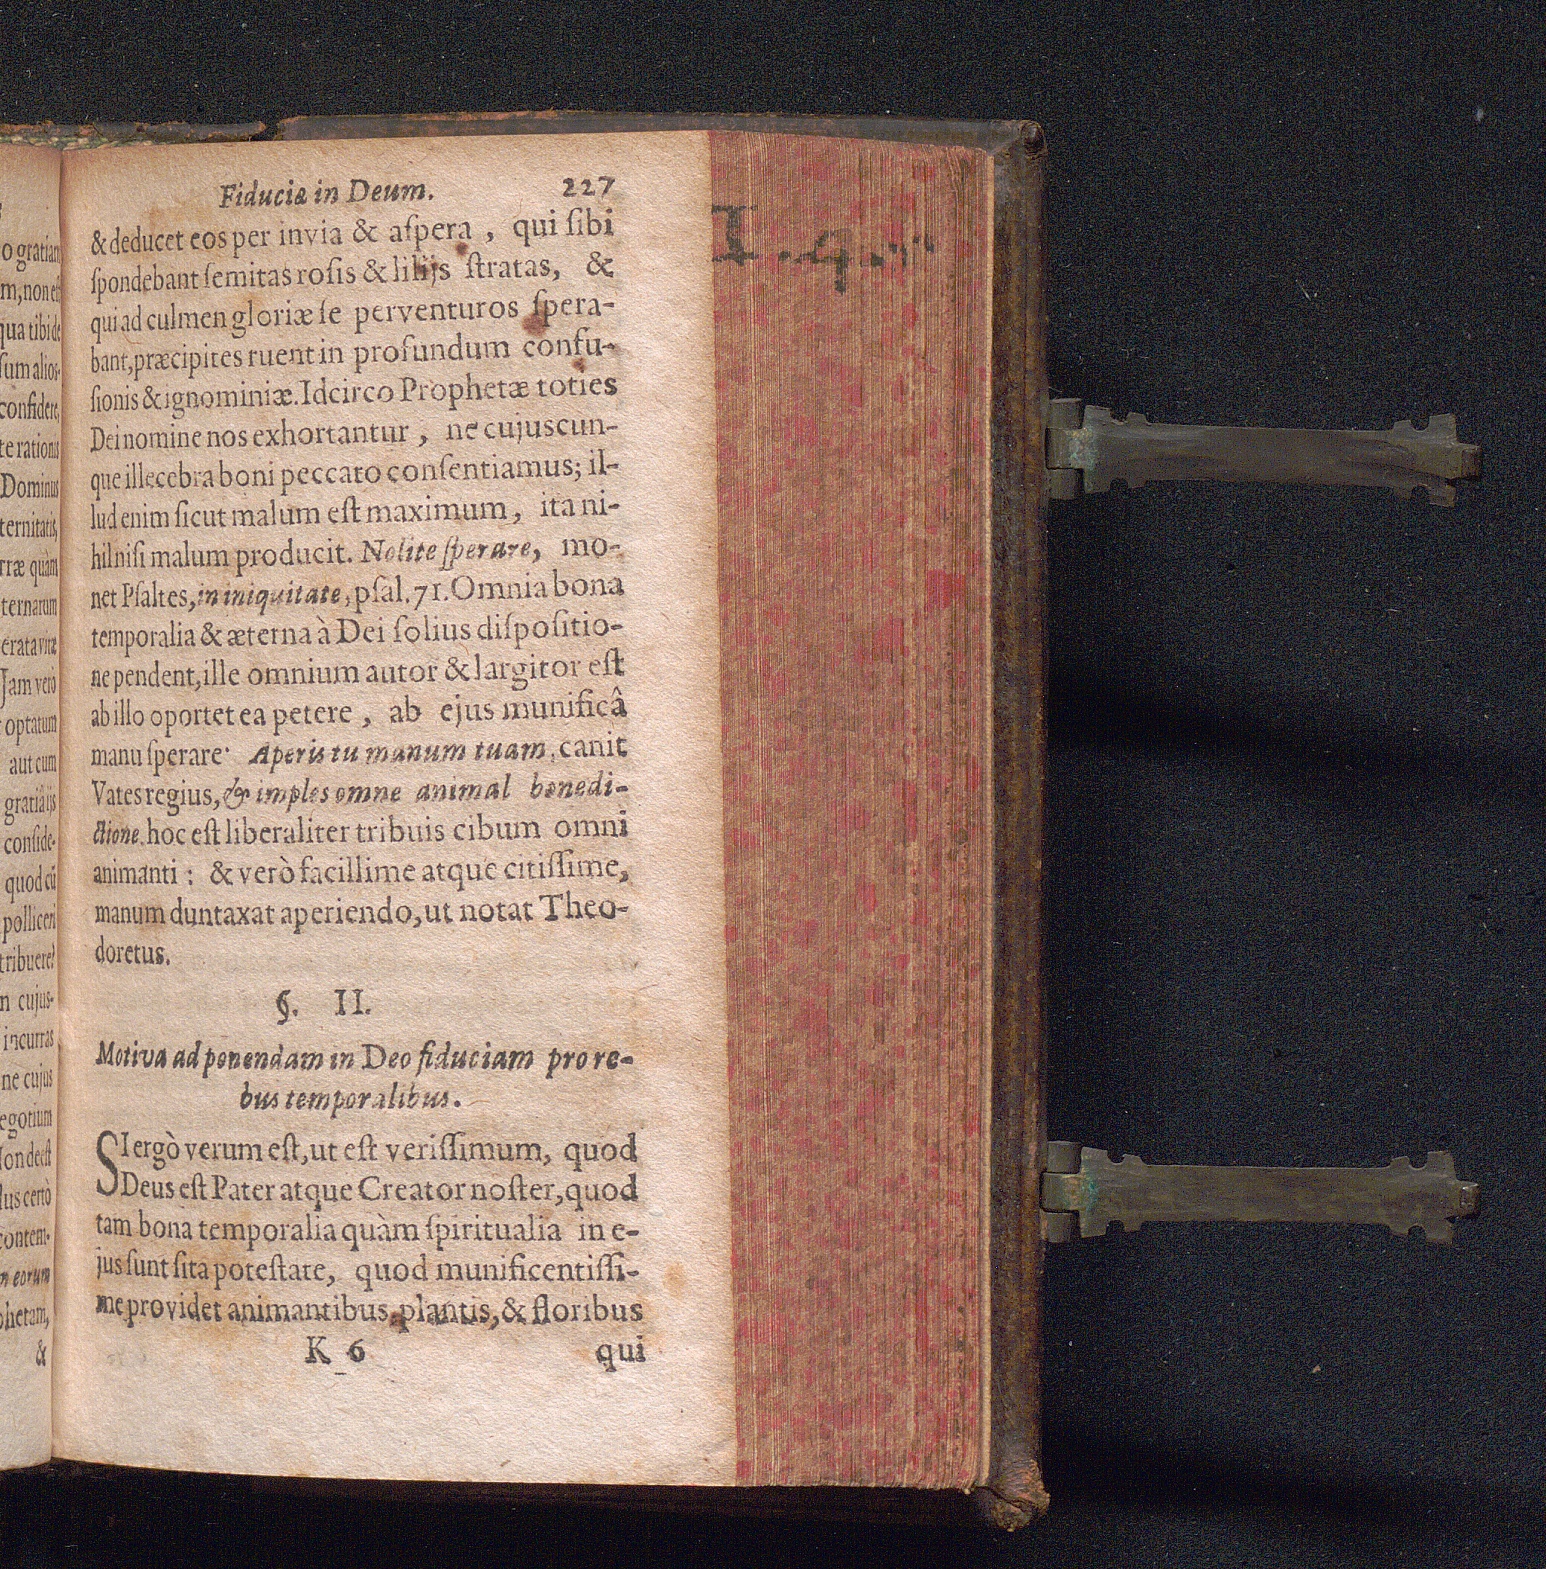 o gratiam
m, non est
qua tibi de
sum alios-
confidere,
te rationis
Dominus
ternitatis,
rræ quàm
ternarum
erata vitæ
Jam verò
optatum
aut cum
gratiâ ijs
conside-
quod cū
polliceri
tribuere?
n cujus-
incurras
ne cujus
egotium
lus certò
contem-
n eorum
phetam,
&
Fiduciæ in Deum. 227
& deducet eos per invia & aſpera, qui ſibi
ſpondebant ſemitas roſis & lilijs ſtratas, &
qui ad culmen gloriæ ſe perventuros ſpera-
bant, præcipites ruent in profundum confu-
ſionis & ignominiæ. Idcirco Prophetæ toties
Dei nomine nos exhortantur, ne cujuscun-
que illecebra boni peccato conſentiamus; il-
lud enim ſicut malum eſt maximum, ita ni-
hil niſi malum producit. Nolite ſperare, mo-
net Pſaltes, in iniquitate, pſal. 71. Omnia bona
temporalia & æterna à Dei ſolius diſpoſitio-
ne pendent, ille omnium autor & largitor eſt
ab illo oportet ea petere, ab ejus munificâ
manu ſperare· Aperis tu manum tuam, canit
Vates regius, & imples omne animal benedi-
ctione. hoc eſt liberaliter tribuis cibum omni
animanti: & verò facillime atque citiſſime,
manum duntaxat aperiendo, ut notat Theo-
doretus.
§. II.
Motiva ad ponendam in Deo fiduciam pro re-
bus temporalibus.
SI ergò verum eſt, ut eſt veriſſimum, quod
Deus eſt Pater atque Creator noſter, quod
tam bona temporalia quàm ſpiritualia in e-
jus ſunt ſita poteſtate, quod munificentiſſi-
me providet animantibus, plantis, & floribus
K 6 qui